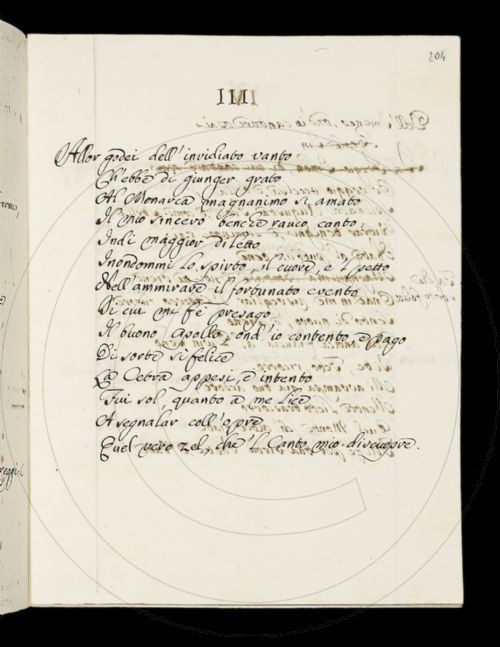 204
IIII
Allor godei dell'invidiato vanto
Ch'ebbe di giunger grato
Al Monarca magnanimo sì amato
Il mio sincero benche rauco canto:
Indi maggior diletto
Inondommi lo spirto, il cuore, e 'l petto
Nell'ammirare il fortunato evento
Di cui mi fe' presago
Il buono Apollo, ond'io contento, e pago
Di sorte sì felice
La Cetra appesi, e intento
Fui sol quanto a me lice
A segnalar coll'opre
Quel vero zel, che 'l Canto mio discuopre.